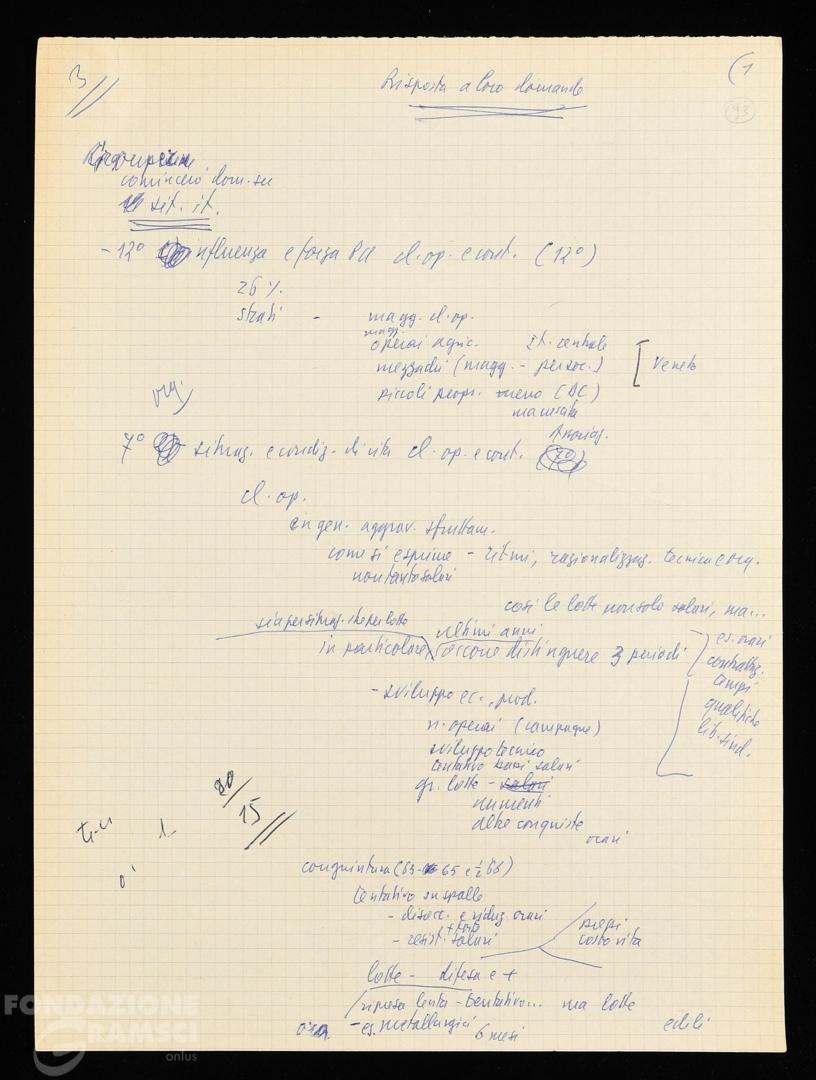 3
(1
93
Risposta a loro domande
comincerò dom. su
sit. it.
- 12° influenza e forza PCI cl. op. e cont. (12°)
26 %
strati - magg. cl. op.
magg.
operai agric. It. centrale
mezzadri (magg. - ) Veneto
piccoli propr. meno (DC)
macerata
org.
7° situaz. e condiz. di vita cl. op. e cont. (7°)
cl. op.
in gen. aggrav. sfruttam.
come si esprime - ritmi, razionalizzaz. tecnica e org.
non tanto salari
così le lotte non solo salari, ma...
sia per situaz. che per lotte
ultimi anni
in particolare occorre distinguere 3 periodi
es. orari
contrattaz.
tempi
qualifiche
lib. sind.
- sviluppo ec., prod.
n. operai (campagne)
sviluppo tecnico
tentativo bassi salari
gr. lotte - salari
aumenti
altre conquiste
orari
20/15
congiuntura (63-65 e ½ 66)
tentativo su spalle
- disocc. e riduz. orari
- resist. salari
prezzi
costo vita
lotte - difesa e +
ripresa lenta - tentativo... ma lotte
ora - es. metallurgici 6 mesi edili
FONDAZIONE
GRAMSCI
onlus